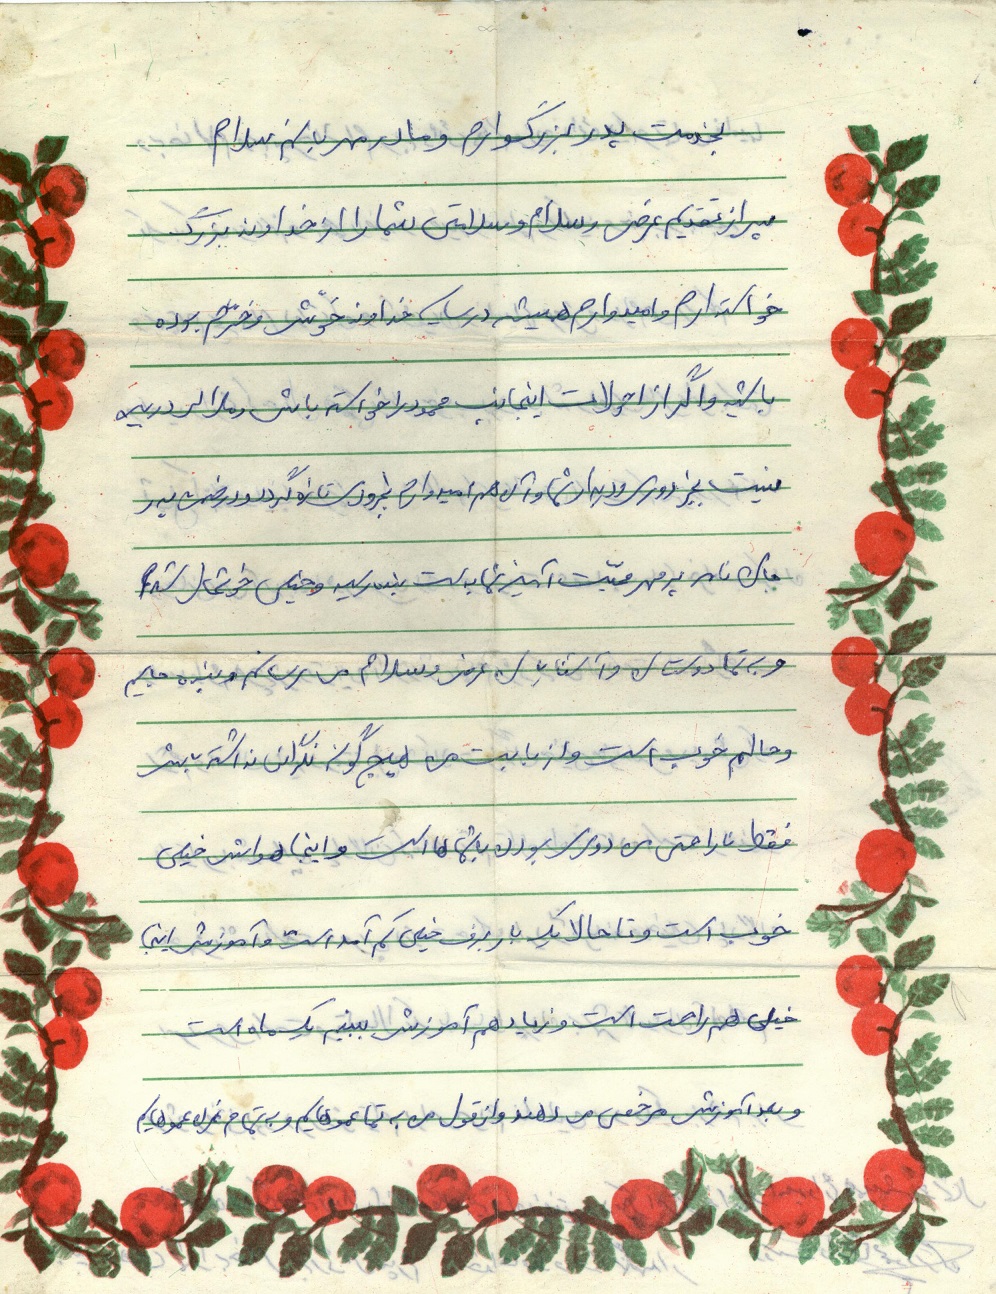 بخدمت پدر بزرگوارم و مادر مهربانم سلام
پس از تقدیم عرض سلام و سلامتی شما را از خداوند بزرگ
خواستارم و امیدوارم همیشه در سایه خداوند خوش و خرّم بوده
باشید و اگر از احولات اینجانب محمود را خواسته باش
نیست بجز دوری و دیدار شما و آن هم امیدوارم بزودی تازه گردد و در ضمن پدر
جان نامه پر مهر محبّت آمیز شما بدست بنده رسید و خیلی خوشحال شدم
و به تما دوستان و آشنایان عرض و سلام می رسانم و بنده حالیم
و حالم خوب است و از بابت من هیچ گونه نگران نداشته باش
فقط ناراحتی من دوری بودن با شماها است و اینجا هوایش خیلی
خوب است و تا حالا یک بار برف خیلی کم آمد است و آموزش اینجا
خیلی هم راحت است و زیاد هم آموزش ببینیم یک ماه است
و بعد آموزش مرخصی می دهند و از قول من به تما عموهایم و به تمام عموهایم